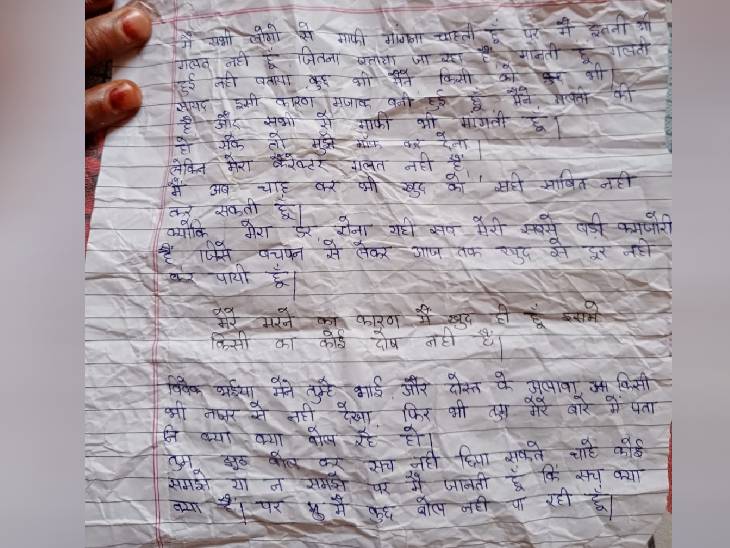 मैं सभी लोगो से माफी मांगना चाहती हूं पर मैं इतनी भी
गलत नही हूं जितना बताया जा रहा है, मानती हूं गलती
हुई नही बताया कुछ भी मैंने किसी को भी।
शायद इसी कारण मजाक बनी हुई हूं मैंने गलती की
है और सभी से माफी भी मांगती हूं।
हो सके तो मुझे माफ कर देना।
लेकिन मेरा कैरेक्टर गलत नही है,
मैं अब चाह कर भी खुद को सही साबित नही
कर सकती हूं।
क्योंकि मेरा डर, रोना यही सब मेरी सबसे बडी कमजोरी
है जिसे बचपन से लेकर आज तक खुद से दूर नही
कर पायी हूँ।
मेरे मरने का कारण मैं खुद ही हूं इसमे
किसी का कोई दोष नही है।
विवेक भईया मैंने तुम्हे भाई और दोस्त के अलावा किसी
भी नजर से नही देखा, फिर भी तुम मेरे बारे में पता
नि क्या क्या बोल रहे हो।
तुम झूठ बोल कर सच नही छिपा सकते चाहे कोई
समझे या न समझे पर मैं जानती हूँ कि सच क्या
क्या है। पर मैं कुछ बोल नही पा रही हूँ।